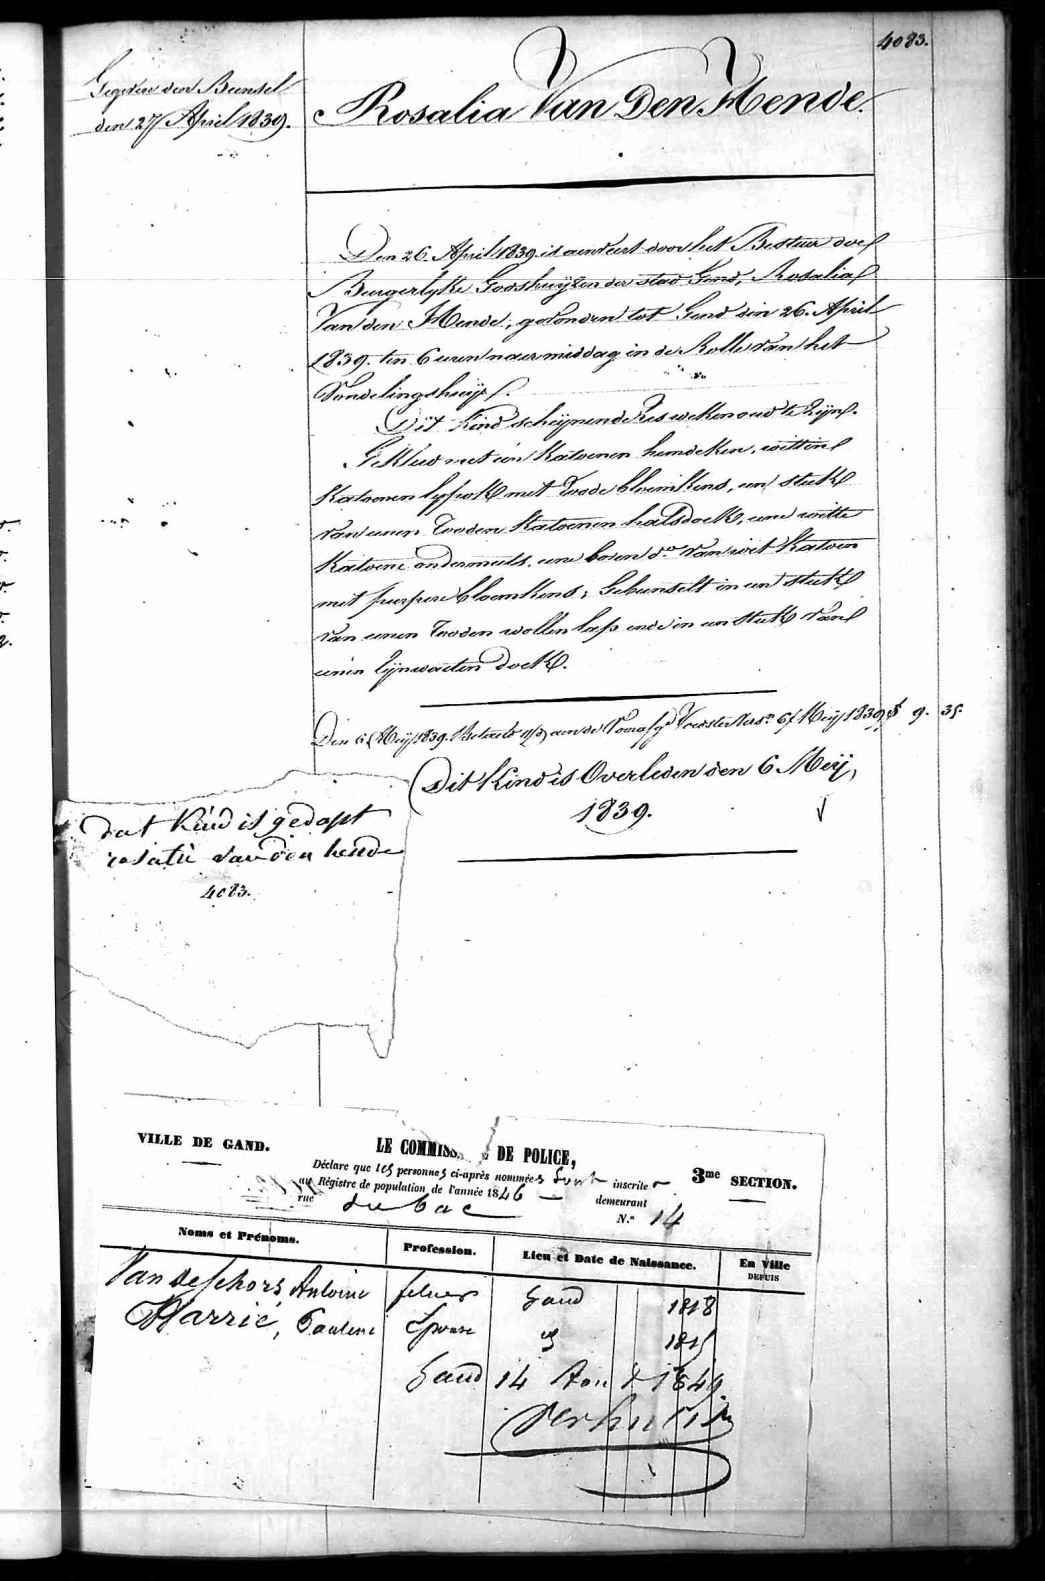 4083.
den 27 April 1839.
Rosalia Van Den Hende.
Den 26 April 1839 is aenveert door het Bestuer der
Burgerlyke Godshuyzen der stad Gend, Rosalia
Van den Hende, gevonden tot Gend den 26. April
1839. ten 6 uren naermiddag in de Rolle van het
Vondelingshuijs.
Dit Kind scheijnende zes weken oud te zijn.
Gekleed met een Katoenen hemdeken, witten
Katoenen lyfrok met roode bloemkens, een stuk
van eenen rooden Katoenen halsdoek, eene witte
Katoene ondermuts, eene boven do. van wit Katoen
met purpere bloemkens; Gebunselt in een stuk
van eenen rooden wollen lap ende in een stuk van
eenen lynwaeten doek.
Den 6 Meij 1839. Betaelt aen de 6 Meij 1839 9. 35.
Dit Kind is Overleden den 6 Meij,
1839.
dat kind is gedopt
van den hende
4083.
VILLE DE GAND.
LE COMMISS DE POLICE,
3me SECTION.
Déclare que les personnes ci-après nommées sont inscrites
au Régistre de population de l'année 1846 demeurant
rue du bac N.° 14
Noms et Prénoms.
Profession.
Lieu et Date de Naissance.
En Ville
DEPUIS
Antoine fileur Gand 1818
Pauline Epouse 1815
Gand 14 1849